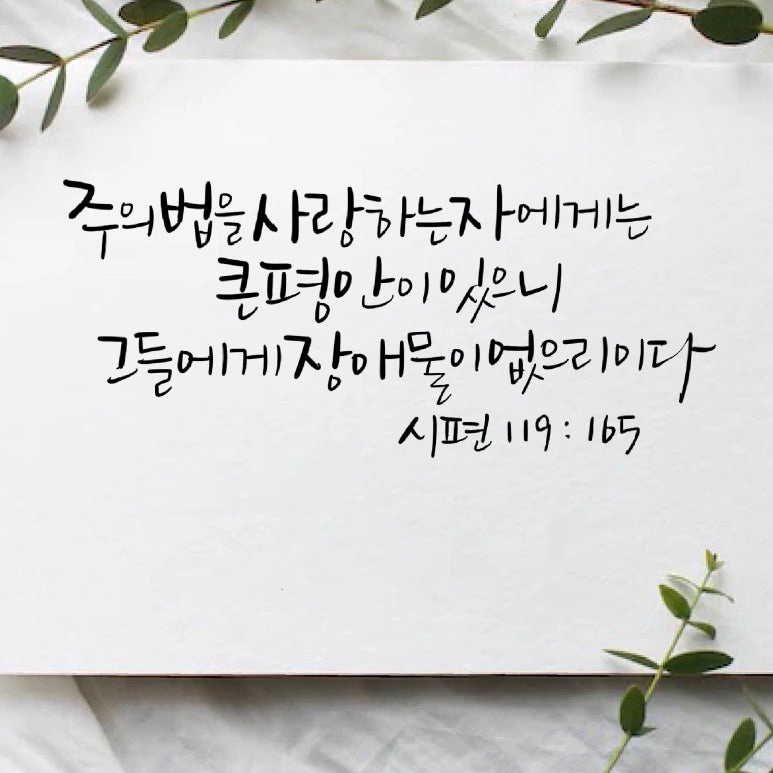 주의 법을 사랑하는 자에게는
큰 평안이 있으니
그들에게 장애물이 없으리이다
시편 119 : 165